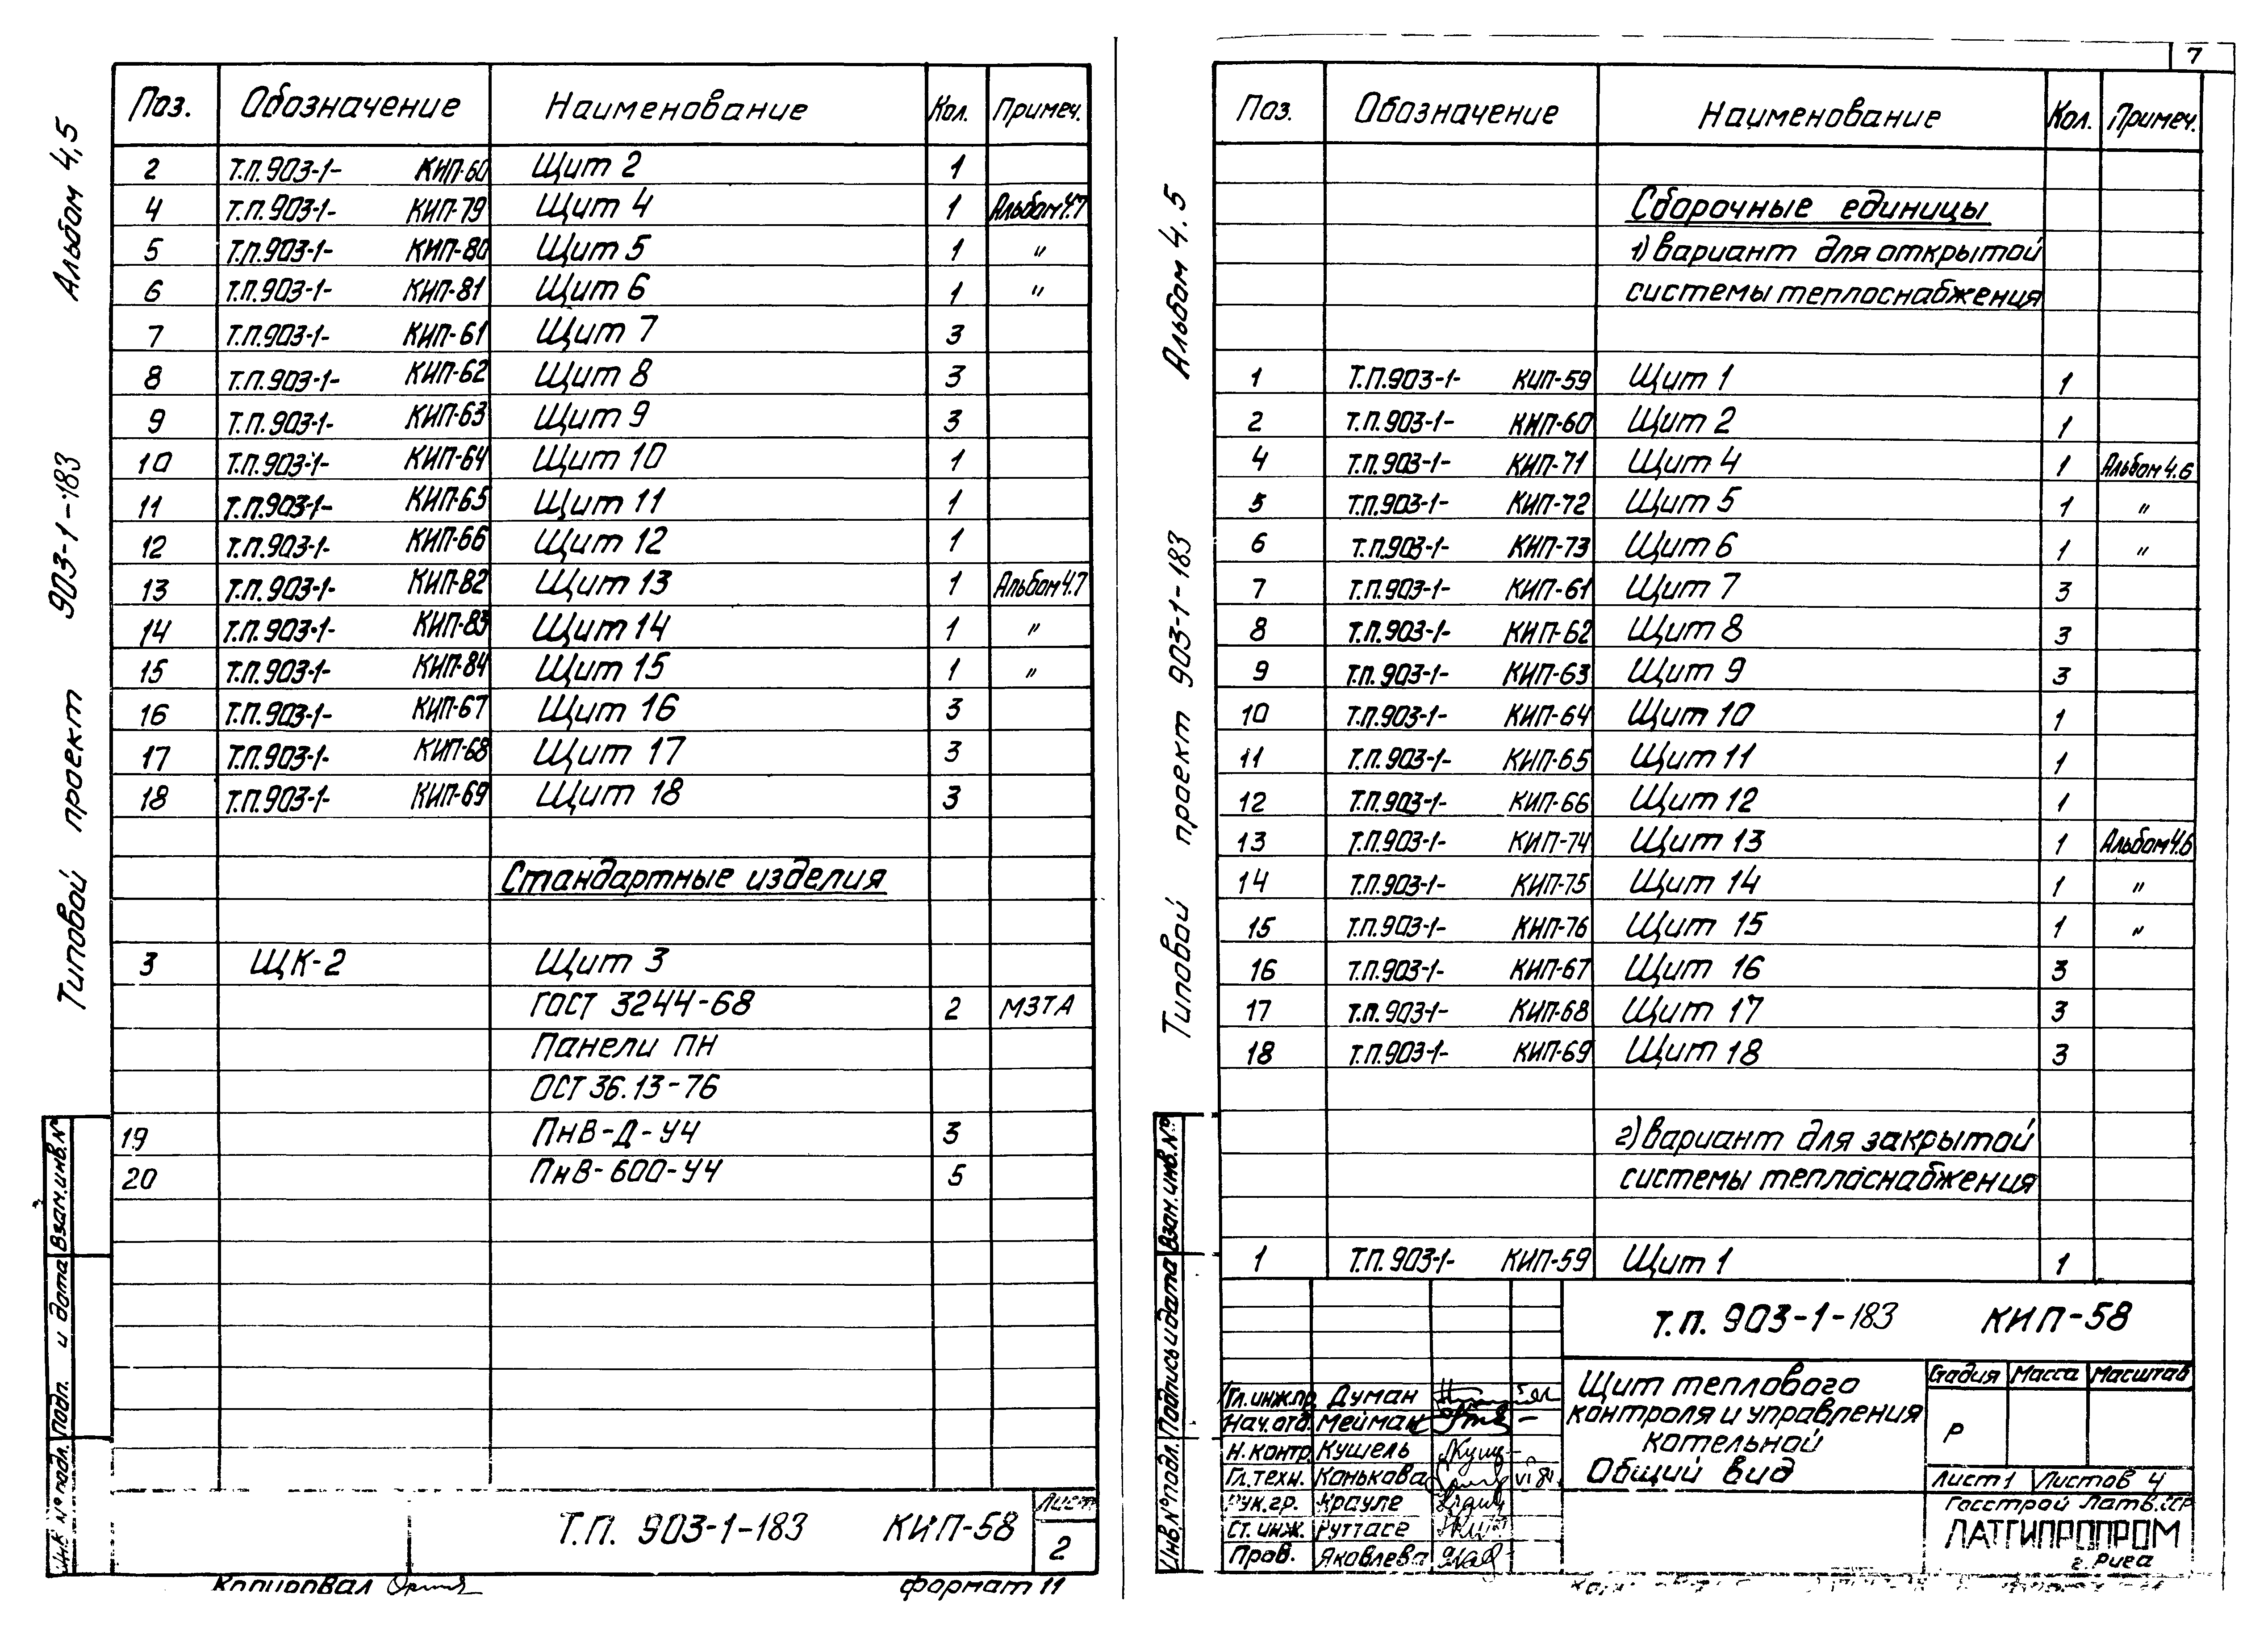 Альбом 4,5
Типовой проект 903-1-183
Поз. Обозначение Наименование Кол. Примеч.
2 Т.П.903-1- КИП-60 Щит 2 1
4 Т.П.903-1- КИП-79 Щит 4 1 Альбом 4.7
5 Т.П.903-1- КИП-80 Щит 5 1 "
6 Т.П.903-1- КИП-81 Щит 6 1 "
7 Т.П.903-1- КИП-61 Щит 7 3
8 Т.П.903-1- КИП-62 Щит 8 3
9 Т.П.903-1- КИП-63 Щит 9 3
10 Т.П.903-1- КИП-64 Щит 10 1
11 Т.П.903-1- КИП-65 Щит 11 1
12 Т.П.903-1- КИП-66 Щит 12 1
13 Т.П.903-1- КИП-82 Щит 13 1 Альбом 4.7
14 Т.П.903-1- КИП-83 Щит 14 1 "
15 Т.П.903-1- КИП-84 Щит 15 1 "
16 Т.П.903-1- КИП-67 Щит 16 3
17 Т.П.903-1- КИП-68 Щит 17 3
18 Т.П.903-1- КИП-69 Щит 18 3
Стандартные изделия
3 ЩК-2 Щит 3
ГОСТ 3244-68 2 МЗТА
Панели ПН
ОСТ 36.13-76
19 ПнВ-Д-УЧ 3
20 ПнВ-600-УЧ 5
Взам.инв.№
Подп. и дата
Инв. № подл.
Т.П. 903-1-183 КИП-58 Лист
2
Копировал формат 11
7
Альбом 4.5
Типовой проект 903-1-183
Поз. Обозначение Наименование Кол. Примеч.
Сборочные единицы
1) вариант для открытой
системы теплоснабжения
1 Т.П.903-1- КИП-59 Щит 1 1
2 Т.П.903-1- КИП-60 Щит 2 1
4 Т.П.903-1- КИП-71 Щит 4 1 Альбом 4.6
5 Т.П.903-1- КИП-72 Щит 5 1 "
6 Т.П.903-1- КИП-73 Щит 6 1 "
7 Т.П.903-1- КИП-61 Щит 7 3
8 Т.П.903-1- КИП-62 Щит 8 3
9 Т.П.903-1- КИП-63 Щит 9 3
10 Т.П.903-1- КИП-64 Щит 10 1
11 Т.П.903-1- КИП-65 Щит 11 1
12 Т.П.903-1- КИП-66 Щит 12 1
13 Т.П.903-1- КИП-74 Щит 13 1 Альбом 4.6
14 Т.П.903-1- КИП-75 Щит 14 1 "
15 Т.П.903-1- КИП-76 Щит 15 1 "
16 Т.П.903-1- КИП-67 Щит 16 3
17 Т.П.903-1- КИП-68 Щит 17 3
18 Т.П.903-1- КИП-69 Щит 18 3
2) вариант для закрытой
системы теплоснабжения
1 Т.П.903-1- КИП-59 Щит 1 1
Взам.инв.№
Подпись и дата
Инв.№ подл.
Т.П. 903-1-183 КИП-58
Гл.инж.пр. Думан
Нач.отд. Мейман
Н.контр. Кушель
Гл.техн. Конькова VI 81
Рук.гр. Крауле
Ст. инж. Руттасе
Пров. Яковлева
Щит теплового
контроля и управления
котельной
Общий вид
Стадия Масса Масштаб
Р
Лист 1 Листов 4
Госстрой Латв.ССР
ЛАТГИПРОПРОМ
г. Рига